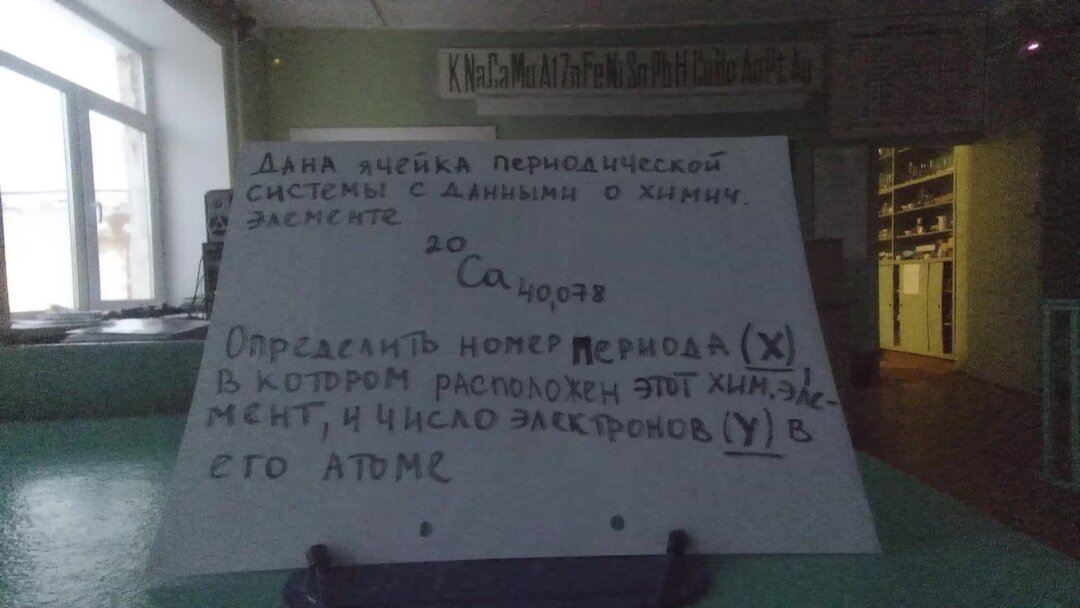 K Na Ca Mg Al Zn Fe Ni Sn Pb H Cu Hg Ag Pt Au
ДАНА ЯЧЕЙКА ПЕРИОДИЧЕСКОЙ
СИСТЕМЫ С ДАННЫМИ О ХИМИЧ.
ЭЛЕМЕНТЕ
20
Ca
40,078
ОПРЕДЕЛИТЬ НОМЕР ПЕРИОДА (X),
В КОТОРОМ РАСПОЛОЖЕН ЭТОТ ХИМ. ЭЛЕ-
МЕНТ, И ЧИСЛО ЭЛЕКТРОНОВ (Y) В
ЕГО АТОМЕ